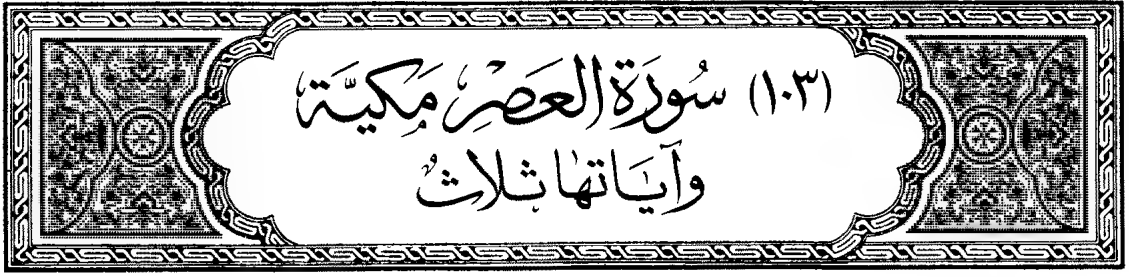 (١٠٣) سُورَة العَصْرِ مَكيَّة
وَآيَاتهَا ثلاثٌ